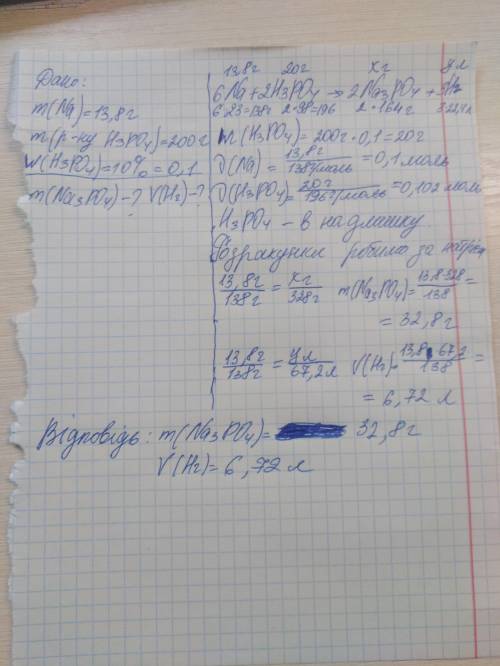 Дано:
m(Na)=13,8г
m(р-ну H3PO4)=200г
W(H3PO4)=10%=0,1
m(Na3PO4)-? V(H2)-?
13,8г 20г xг yл
6Na+2H3PO4 → 2Na3PO4 + 3H2
6·23=138г 2·98=196 2·164г 3·22,4л
m(H3PO4)=200г·0,1=20г
ν(Na)=13,8г/138г/моль=0,1 моль
ν(H3PO4)=20г/196г/моль=0,102 моль
H3PO4 - в надлишку
Розрахунки робимо за натрієм
13,8г/138г=xг/328г m(Na3PO4)=13,8·328/138=
=32,8г
13,8г/138г=yл/67,2л V(H2)=13,8·67,2/138=
=6,72 л
Відповідь: m(Na3PO4)= 32,8г
V(H2)=6,72 л